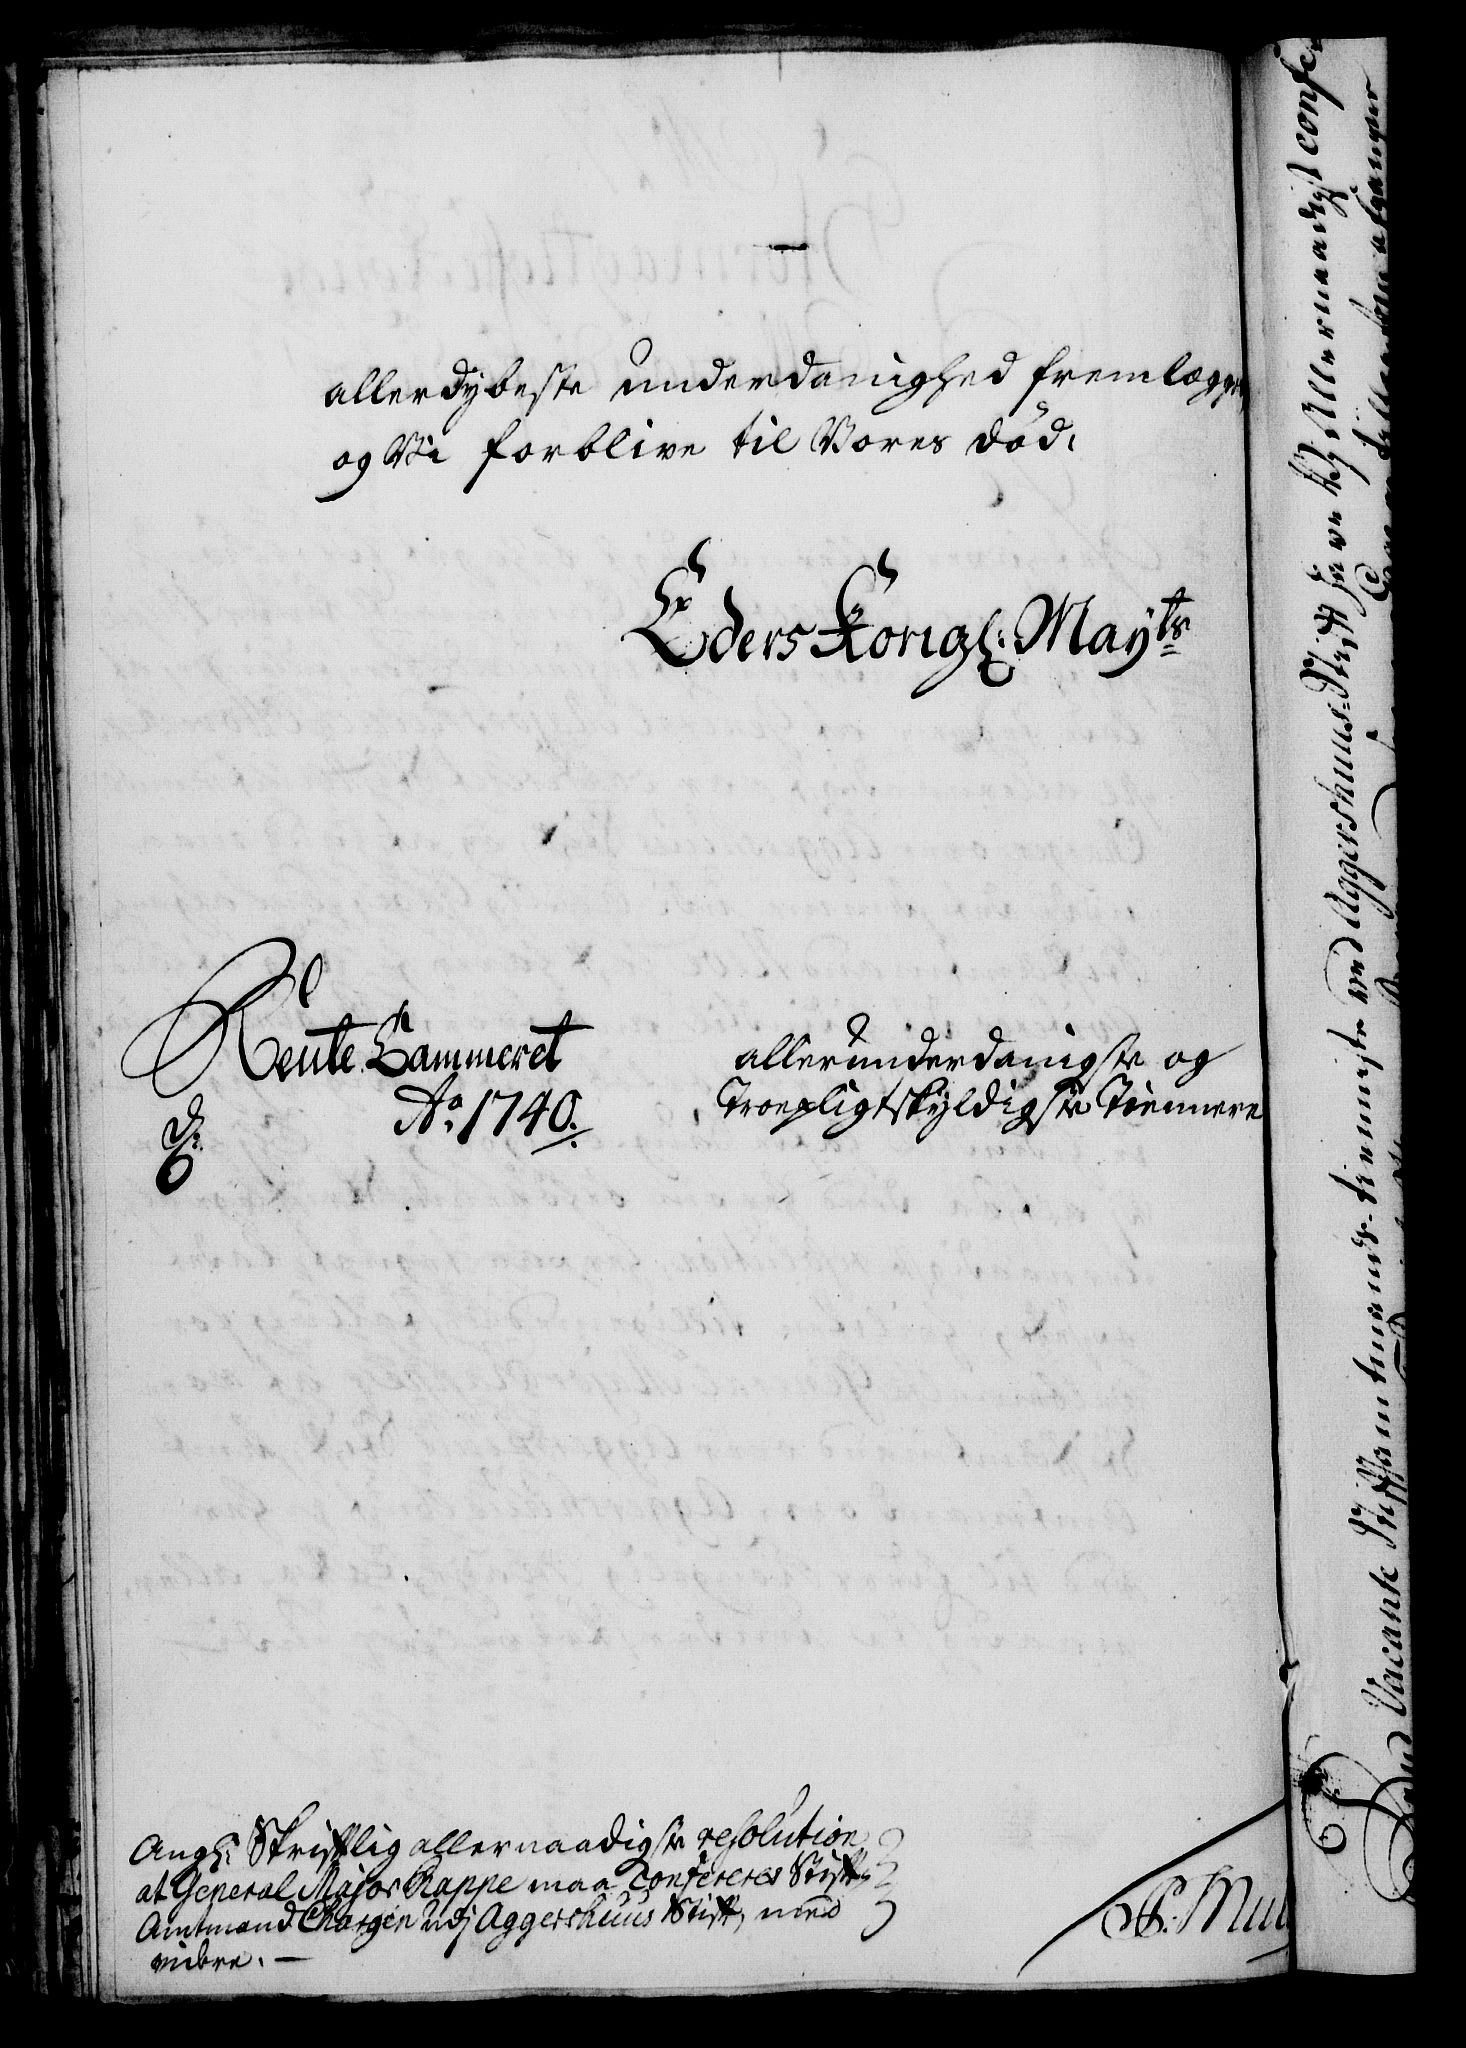 allerdybeste underdanighed fremlægges
og Vi forblive til Vores död.
Eders Kongl: Mayts
Rente Cammeret
Ao. 1740.
allerunderdanigste og
Troepligtskyldigste Tiennere
Angl: Skriftlig allernaadigste resolution
at General Major Rappe maa Confereres Stift
Amtmand Chargen udj Aggershuus Stift, med
videre. —
Vacante Stiftamtmands-tienneste ved Aggershuus-Stift have Vj Allernaadigst confe